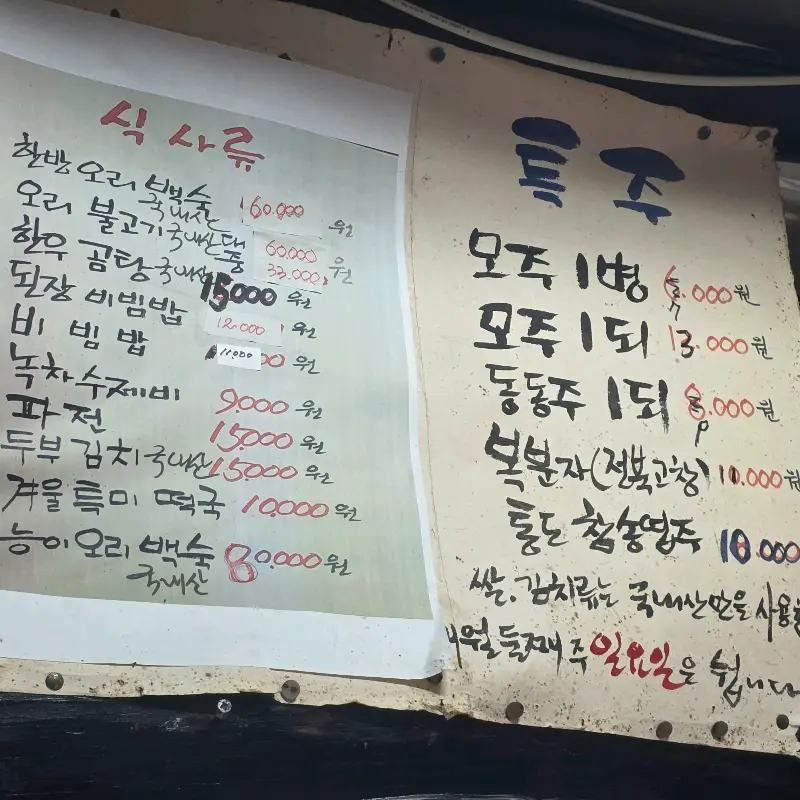 식사류
한방 오리 백숙 60.000 원
국내산
오리 불고기 국내산 대 60.000 원
중 33.000
한우 곰탕 국내산 15000 원
된장 비빔밥 12.000 원
비빔밥 11.000 원
녹차수제비 9.000 원
파전 15.000 원
두부 김치 국내산 15000 원
겨울특미 떡국 10.000 원
능이오리 백숙 80.000 원
국내산
특주
모주 1병 6.000 원
모주 1되 13.000 원
동동주 1되 8.000 원
복분자(전북고창) 11.000 원
통도 참송엽주 10.000
쌀.김치류는 국내산만을
둘째주 일요일은 쉽니다